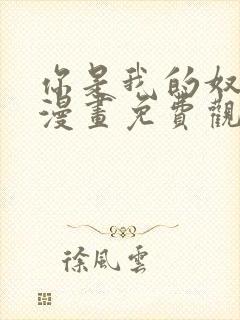 你是我的奴
漫畫免費觀
徐風雲